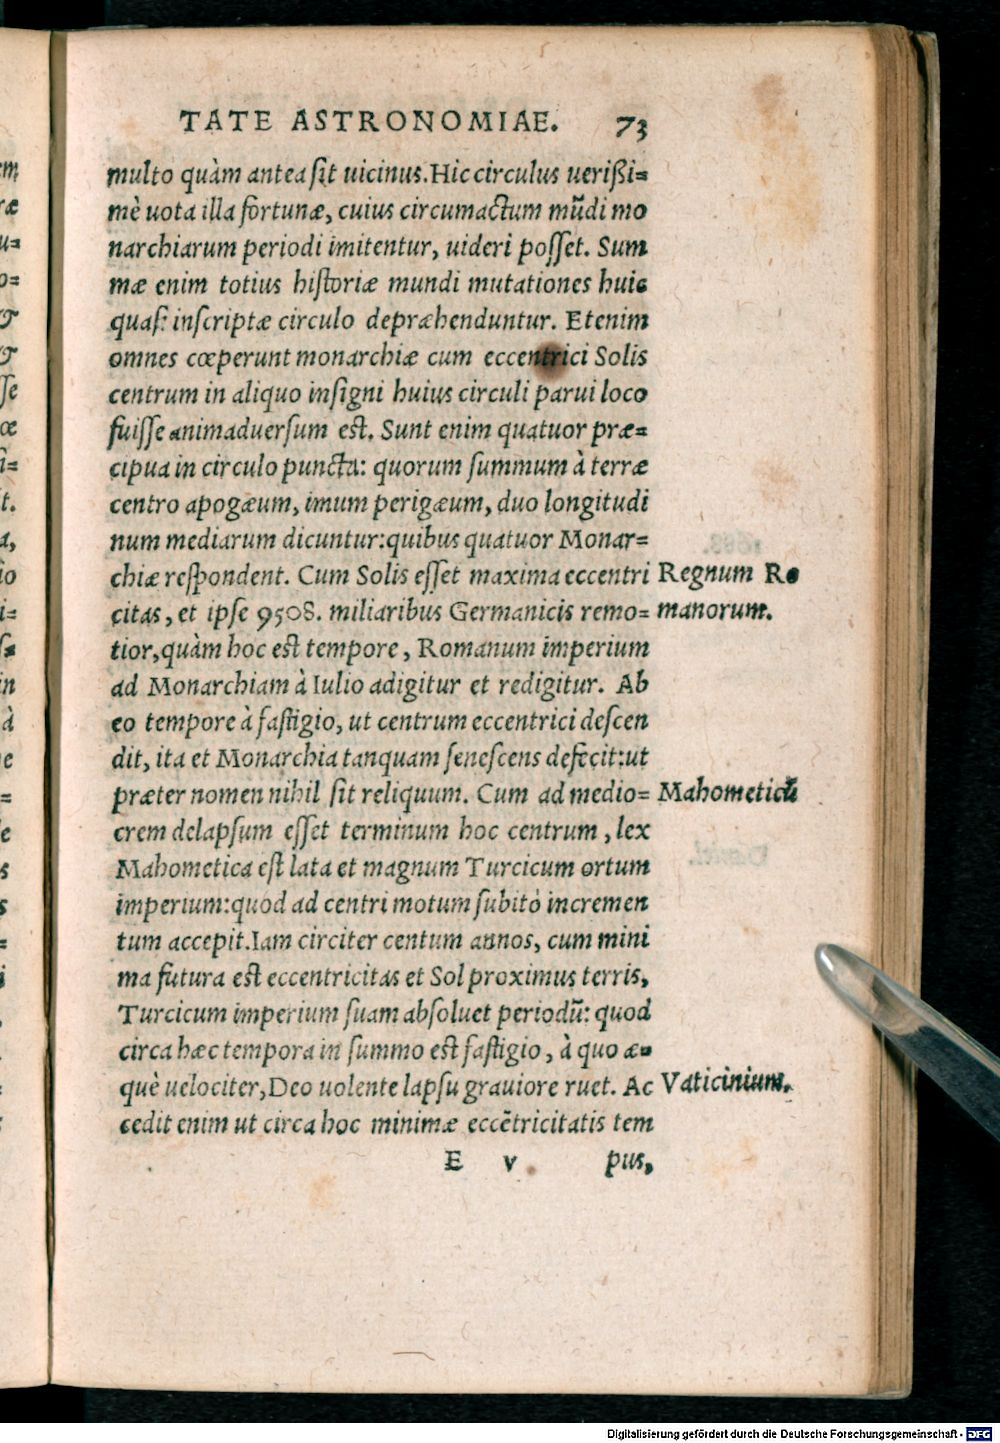 TATE ASTRONOMIAE. 73
multo quàm antea ſit uicinus. Hic circulus ueriſsi=
mè uota illa fortunæ, cuius circumactum mũdi mo
narchiarum periodi imitentur, uideri poſſet. Sum
mæ enim totius hiſtoriæ mundi mutationes huic
quaſi inſcriptæ circulo depræhenduntur. Etenim
omnes cœperunt monarchiæ cum eccentrici Solis
centrum in aliquo inſigni huius circuli parui loco
fuiſſe animaduerſum eſt. Sunt enim quatuor præ=
cipua in circulo puncta: quorum ſummum à terræ
centro apogæum, imum perigæum, duo longitudi
num mediarum dicuntur: quibus quatuor Monar=
chiæ reſpondent. Cum Solis eſſet maxima eccentri
Regnum Ro
citas, et ipſe 9508. miliaribus Germanicis remo=
manorum.
tior, quàm hoc eſt tempore, Romanum imperium
ad Monarchiam à Iulio adigitur et redigitur. Ab
eo tempore à faſtigio, ut centrum eccentrici deſcen
dit, ita et Monarchia tanquam ſeneſcens defecit: ut
præter nomen nihil ſit reliquum. Cum ad medio=
Mahometicũ
crem delapſum eſſet terminum hoc centrum, lex
Mahometica eſt lata et magnum Turcicum ortum
imperium: quod ad centri motum ſubitò incremen
tum accepit. Iam circiter centum annos, cum mini
ma futura eſt eccentricitas et Sol proximus terris,
Turcicum imperium ſuam abſoluet periodũ: quod
circa hæc tempora in ſummo eſt faſtigio, à quo æ=
què uelociter, Deo uolente lapſu grauiore ruet. Ac
Vaticinium.
cedit enim ut circa hoc minimæ eccẽtricitatis tem
E v pus,
Digitalisierung gefördert durch die Deutsche Forschungsgemeinschaft - DFG